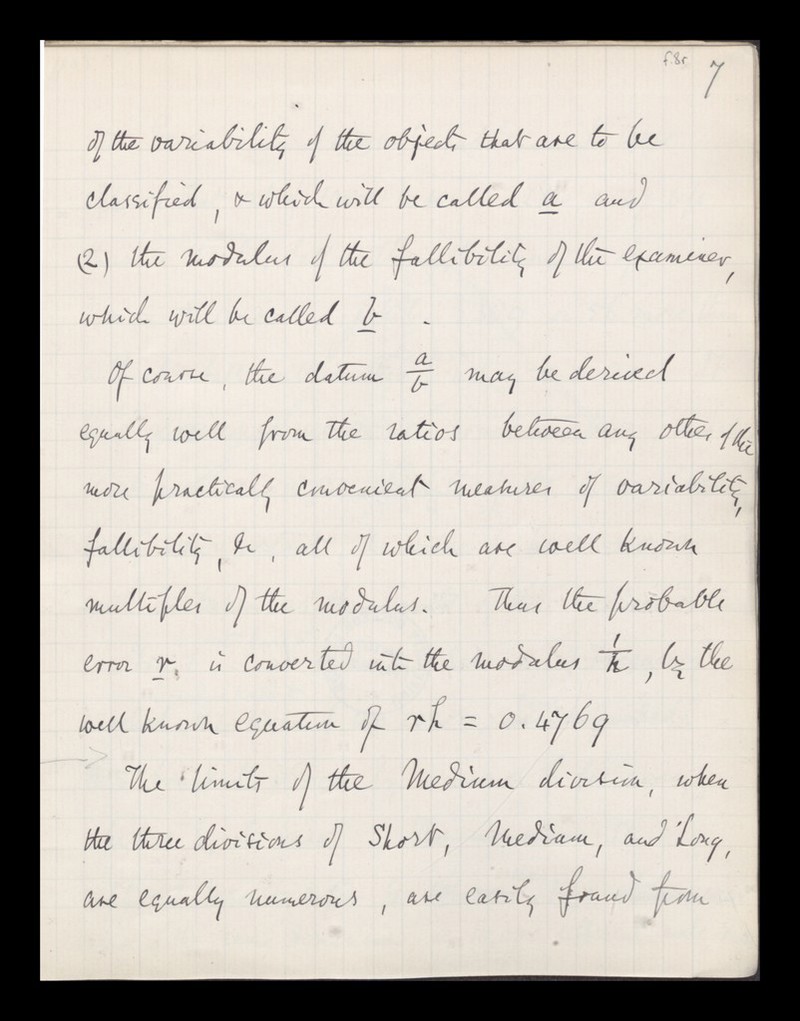 f.8r 7
of the variability of the objects that are to be
classified, & which will be called a and
(2) the modulus of the fallibility of the examiner,
which will be called b .
Of course, the datum a/b may be derived
equally well from the ratios between any other of the
more practically convenient measures of variability,
fallibility, &c, all of which are well known
multiples of the modulus. Thus the probable
error r, is converted into the modulus 1/h, by the
well known equation of rh = 0.4769
The limits of the Medium division, when
the three divisions of Short, Medium, and Long,
are equally numerous, are easily found from